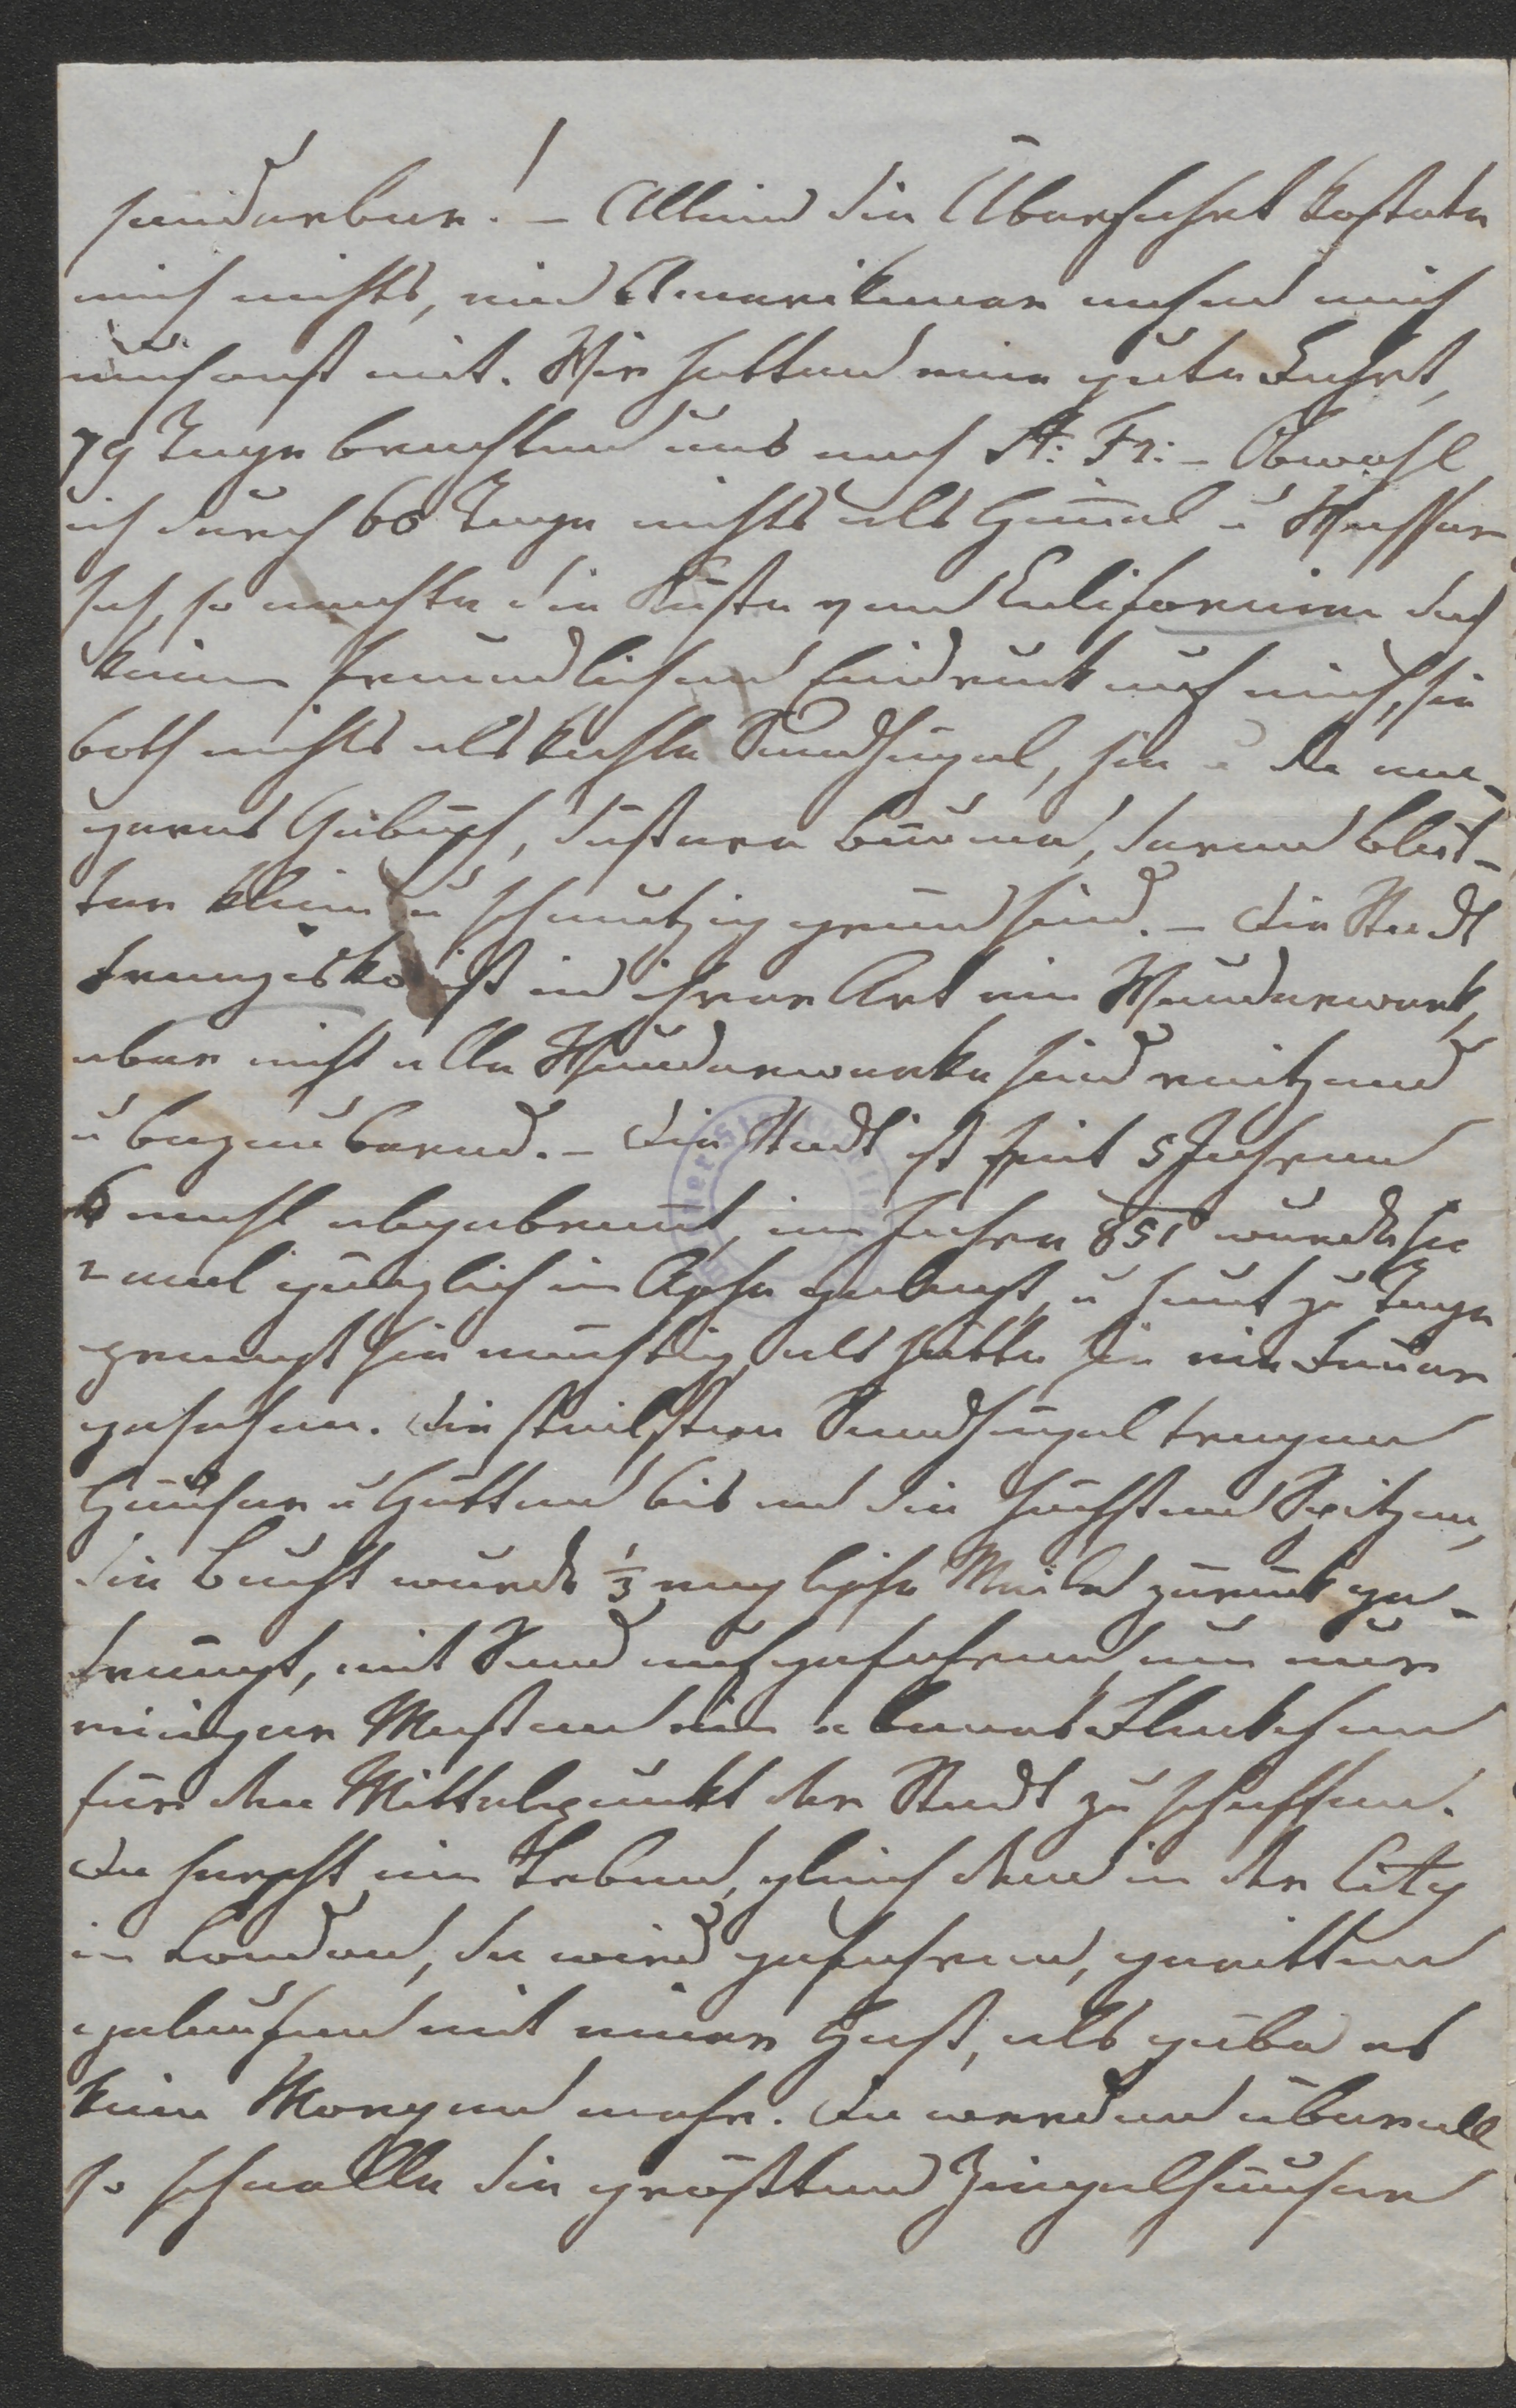 sonderbar! – Allein die Überfahrt kostete
mich nichts, ein Amerikaner nahm mich
umsonst mit. Wir hatten eine gute Fahrt,
79 Tage brachten uns nach St: Fr: – Obwohl
ich durch 60 Tage nichts als Himel u Wasser
sah, so machte die Küste von Californien doch
keinen freundlichen Eindruck auf mich, sie
both nichts als kahle Sandhügel, hie u da ma-
geres Gebüsch, düstere Bäume, deren Blät-
ter klein u schmutzig grün sind. – Die Stadt
Franzisko ist in ihrer Art ein Wunderwerk,
aber nicht alle Wunderwerke sind reitzend
u bezaubernd. – Die Stadt ist seit 5 Jahren
6 mahl abgebrant, im Jahre 851 wurde sie
2 mal gänzlich in Asche gelegt, u heut zu Tage
prangt sie mächtig als hätte sie nie Feuer
gesehen. Die steilsten Sandhügel tragen
Häuser u Hütten bis an die höchsten Spitzen,
die Bucht wurde 1/3 englische Meile zurück ge-
drängt, mit Sand aufgefahren, um nur
einiger Massen ein ebenes Fleckchen
für den Mittelpunkt der Stadt zu schaffen.
Da herscht ein Leben, gleich dem in der City
in London, da wird gefahren, geritten
gelaufen mit einer Hast, als gäbe es
kein Morgen mehr. Da werden überall
so schnelle die größten Ziegelhäuser